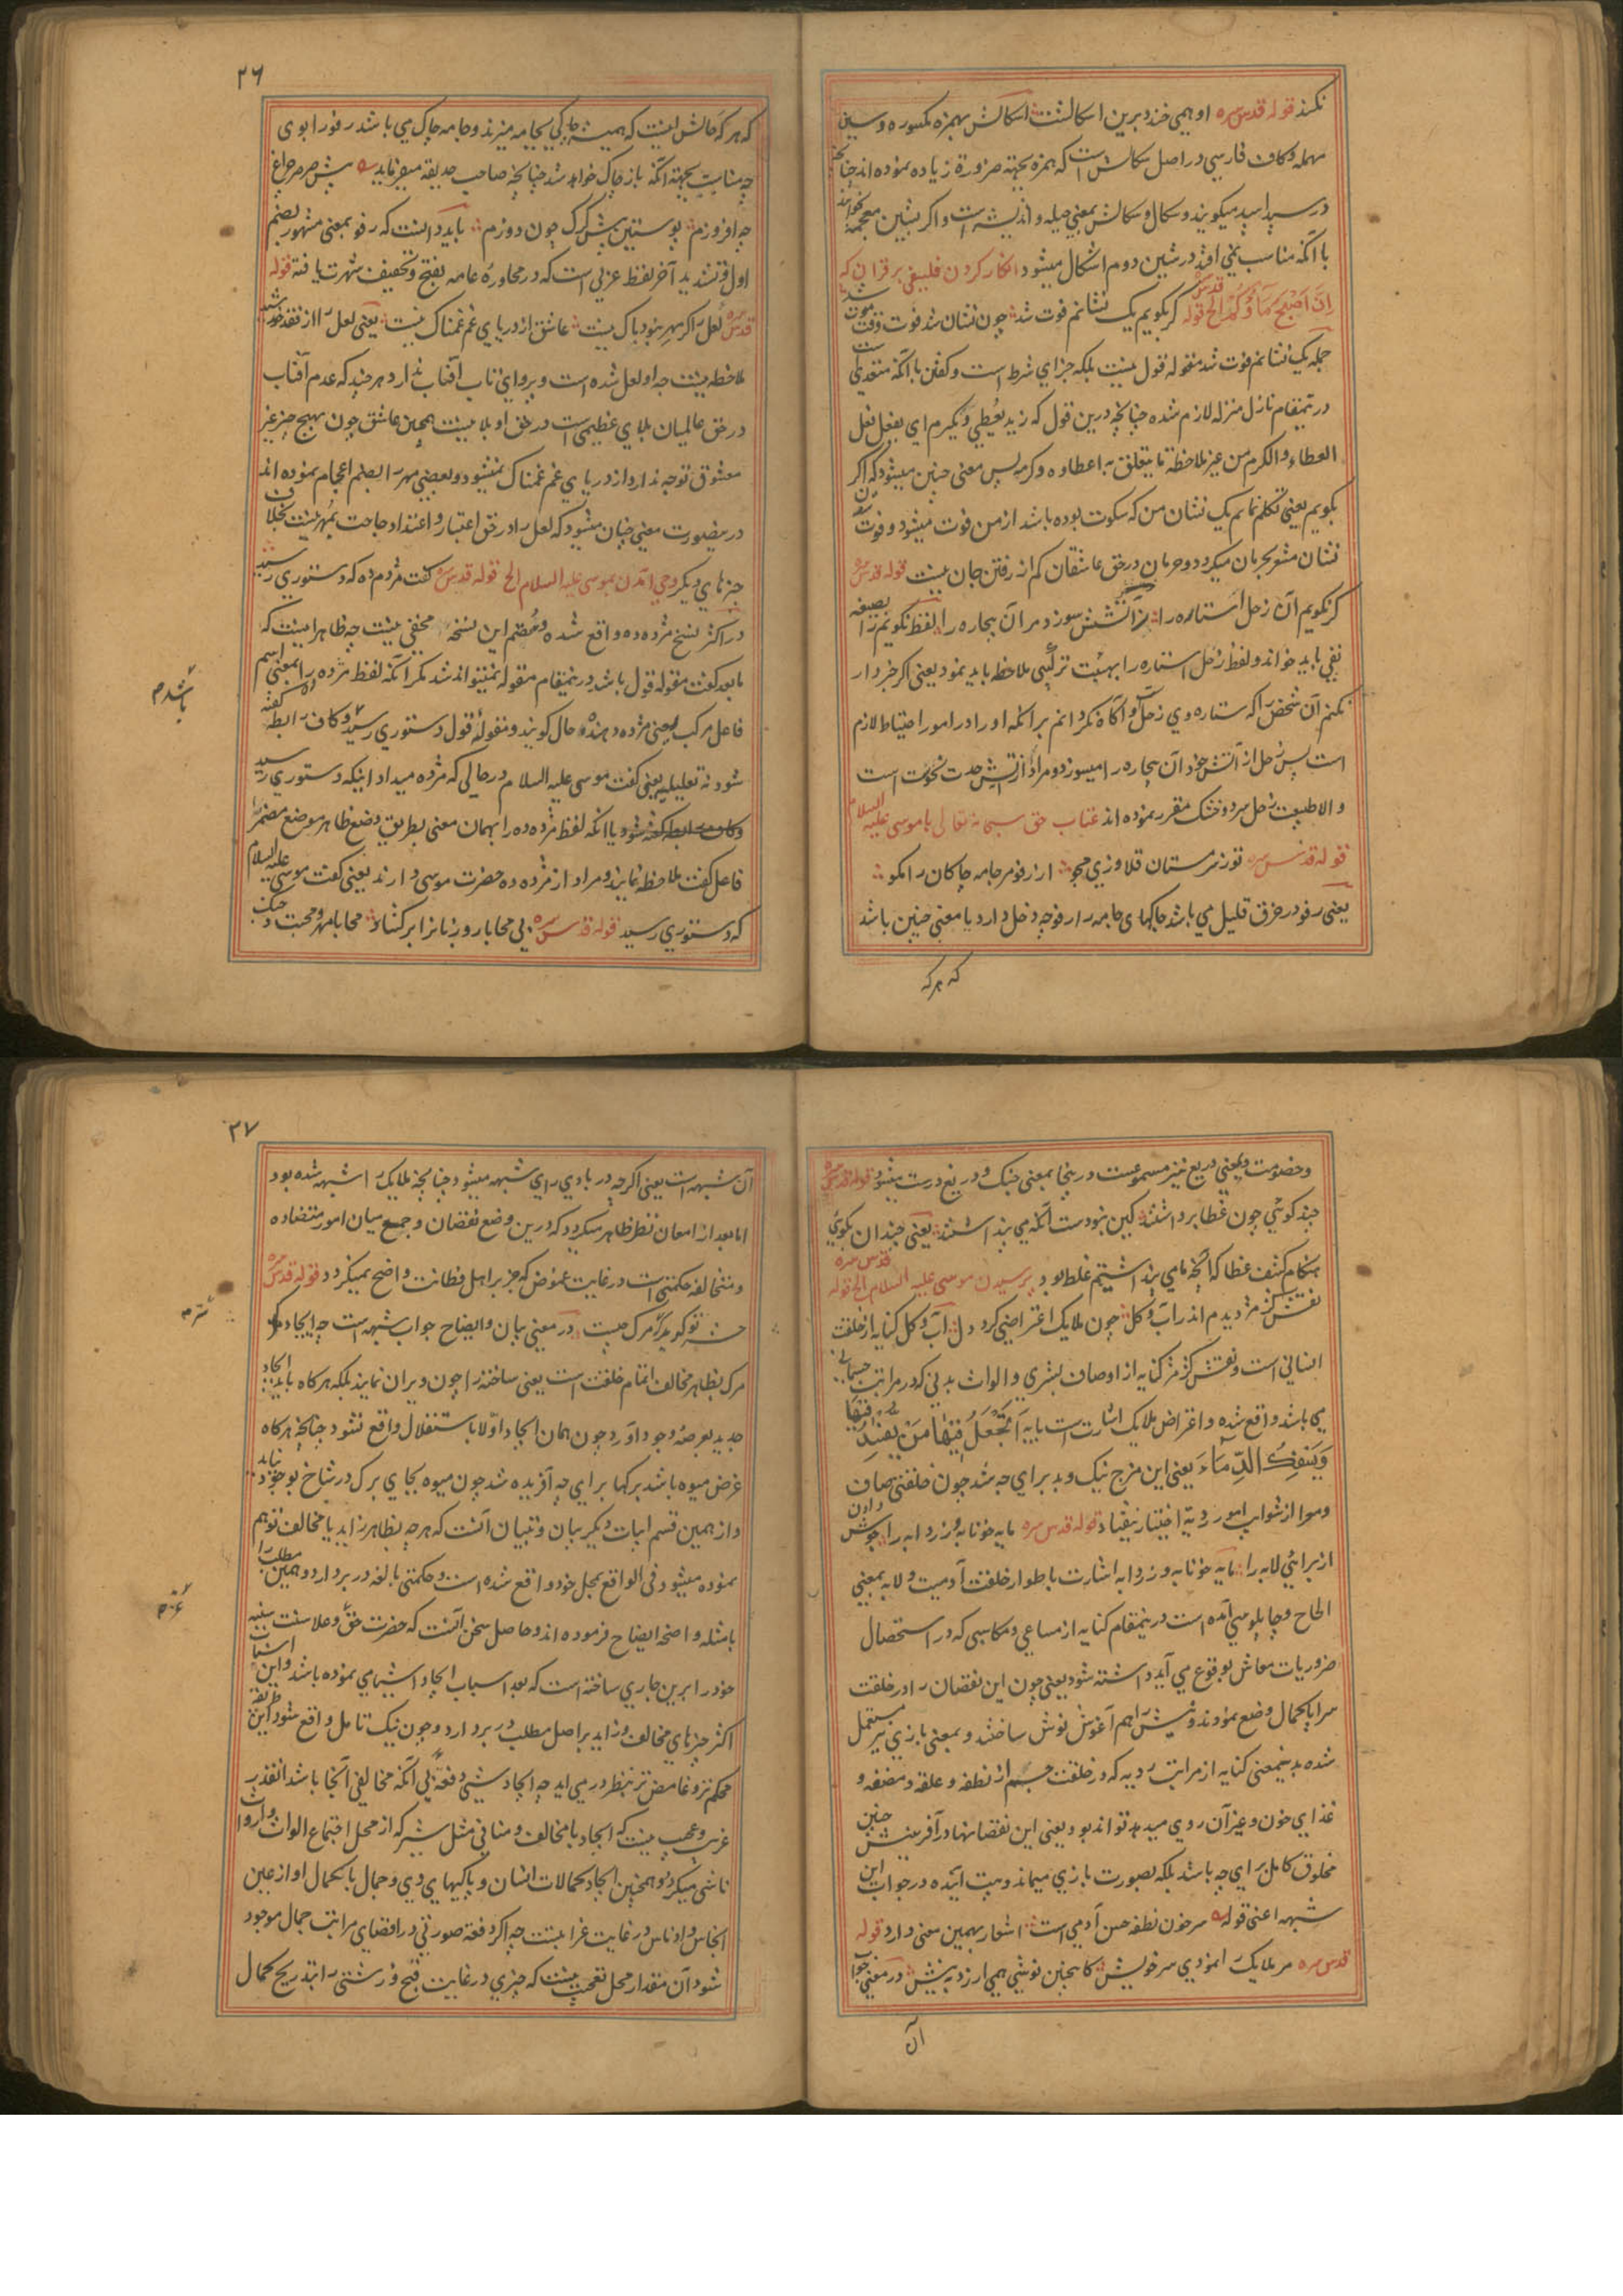 نکند قوله قدس سره او همی خندد برین اسکالشت اسکالش بهمزه مکسوره و سین
مهمله و کاف فارسی در اصل سکالش است که همزه بجهته ضرورة زیاده نموده اند چنانچه
در سپید اسپید میگویند و سکال و سکالش بمعنی حیله و اندیشه است و اگر بشین معجمه خوانند
با آنکه مناسب نمی افتد در شین دوم اشکال میشود انکار کردن فلسفی بر قران که
إِنْ أَصْبَحَ مَاؤُكُمْ الخ قوله قدس سره گر بگویم یک نشانم فوت شد چون نشان شد فوت وقت موت شد
جمله یک نشانم فوت شد مقوله قول نیست بلکه جزای شرط است و گفتن با آنکه متعدی است
درینمقام نازل منزله لازم شده چنانچه درین قول که زید یعطی و یکرم ای یفعل فعل
العطاء و الکرم من غیر ملاحظة ما یتعلق به اعطاوه و کرمه پس معنی چنین میشود که اگر
بگویم یعنی تکلم نمایم یک نشان من که سکوت بوده باشد از من فوت میشود و فوت شدن
نشان مشعر بحرمان میگردد و حرمان در حق عاشقان کم از رفتن جان نیست قوله قدس سره
گر نگویم آن زحل استاره را ز آتشش سوزد مر آن بیچاره را لفظ نگویم را بصیغه
نفی باید خواند و لفظ زحل استاره را بهیئت ترکیبی ملاحظه باید نمود یعنی اگر خبردار
نکنم آن شخص را که ستاره وی زحل است و آگاه نگردانم بر آنکه او را در امور احتیاط لازم
است پس زحل از آتش خود آن بیچاره را میسوزد و مراد از آتش حدت نحوست است
و الا طبیعت زحل سرد و خشک مقرر نموده اند عتاب حق سبحانه تعالی با موسی علیه السلام
قوله قدس سره تو ز سرمستان قلاوزی مجو از رفو مر جامه چاکان را مگو
یعنی رفو در خرق قلیل می باشد چاکهای جامه را رفو چه دخل دارد یا معنی چنین باشد
که هر که
۲۶
که هر که حالش اینست که همیشه چاکی بجامه میزند و جامه چاک می باشد رفو را بوی
چه مناسبت بجهته آنکه باز چاک خواهد شد چنانچه صاحب حدیقه میفرماید پیش صرصر چراغ
چه افروزم پوستین پیش گرگ چون دوزم باید دانست که رفو بمعنی مشهور بضم
اول و تشدید آخر لفظ عربی است که در محاوره عامه بفتح و تخفیف شهرت یافته قوله
قدس سره لعل را گر مهر نبود باک نیست عاشق از دریای غم غمناک نیست یعنی لعل را از فقد خورشید
ملاحظه نیست چه او لعل شده است و پروای تاب آفتاب ندارد هرچند که عدم آفتاب
در حق عالمیان بلای عظیمی است در حق او بلا نیست همچنین عاشق چون بهیچ چیز غیر
معشوق توجه ندارد از دریای غم غمناک نمیشود و بعضی مهر را بضم اعجام نموده اند
درینصورت معنی چنان میشود که لعل را در حق اعتبار و اعتداد حاجت بمهر نیست بخلاف
چیزهای دیگر وحی آمدن بموسی علیه السلام الخ قوله قدس سره گفت مژدم ده که دستوری رسید
در اکثر نسخ مژده ده واقع شده و سقم این نسخه مخفی نیست چه ظاهر اینست که
ما بعد گفت مقوله قول باشد و درینمقام مقوله نمیتواند شد مگر آنکه لفظ مژده ده را بمعنی اسم
فاعل مرکب یعنی مژده دهنده حال گویند و مقوله قول دستوری رسید و کاف رابطه گفته
باشد م
شود نه تعلیلیه یعنی گفت موسی علیه السلام در حالی که مژده میداد اینکه دستوری رسید
و کاف رابطه گفته شود یا آنکه لفظ مژده ده را بهمان معنی بطریق وضع ظاهر موضع مضمر را
فاعل گفت ملاحظه نمایند و مراد از مژده ده حضرت موسی دارند یعنی گفت موسی علیه السلام
که دستوری رسید قوله قدس سره بی محابا رو زبان را بر گشاد محابا مهر و محبت و جنگ
و خصومت و یعنی دریغ نیز مسموعست و رینجا بمعنی جنگ و دریغ درست میشود قوله قدس سره
چند گوئی چون غطا برداشتند کین نبودست آنکه می پنداشتند یعنی چندان بگوی
هنگام کشف غطا که آنچه ما می پنداشتیم غلط بود پرسیدن موسی علیه السلام الخ قوله قدس سره
نقش کژمژ دیدم اندر آب و گل چون ملایک اعتراضی کرد دل آب و گل کنایه از خلقت
انسانی است و نقش کژمژ کنایه از اوصاف بشری و الواث بدنی که در مراتب جسمانی
می باشد واقع شده و اعتراض ملایک اشارت است بایه أَتَجْعَلُ فِيهَا مَنْ يُفْسِدُ فِيهَا
وَيَسْفِكُ الدِّمَاءَ یعنی این مزج نیک و بد برای چه شد چون خلقتی صاف
و مبرا از شوایب امور ردیه اختیار نیفتاد قوله قدس سره مایه خونابه و زردابه را جوش دادن
از برای لابه را مایه خونابه و زردابه اشارت باطوار خلقت آدمیست و لابه بمعنی
الحاح و چاپلوسی آمده است درینمقام کنایه از مساعی و مکاسبی که در استحصال
ضروریات معاش بوقوع می آید داشته شود یعنی چون این نقصان را در خلقت
سراپا کمال وضع نمودند و نیش را هم آغوش نوش ساختند و بمعنی بازی نیز مستعمل
شده بدینمعنی کنایه از مراتب ردیه که در خلقت جسم از نطفه و علقه و مضغه و
غذای خون و غیر آن روی میدهد تواند بود یعنی این نقصانها در آفرینش چنین
مخلوق کامل برای چه باشد بلکه بصورت بازی میماند و بیت آینده در جواب این
شبهه اعنی قوله سر خون نطفه حسن آدمی است اشعار بهمین معنی دارد قوله
قدس سره مر ملایک را نمودی سر خویش کاینچنین نوشی همی ارزد به نیش در معنی جواب
آن
۲۷
آن شبهه است یعنی اگرچه در بادی رای شبهه میشود چنانچه ملایک را شبهه شده بود
اما بعد از امعان نظر ظاهر میگردد که درین وضع نقصان و جمع میان امور متضاده
و متخالفه حکمتی است در غایت غموض که جز بر اهل فطانت واضح نمیگردد قوله قدس سره
حشر تو گوید که سر مرگ چیست در معنی بیان و ایضاح جواب شبهه است چه ایجاد
مرگ بظاهر مخالف اتمام خلقت است یعنی ساخته را چون ویران نمایند بلکه هرگاه باید ایجاد
جدید بعرصه وجود آورد چون همان ایجاد اولا باستقلال واقع نشود چنانچه هرگاه
غرض میوه باشد برگها برای چه آفریده شد چون میوه بجای برگ در شاخ بوجود نیاید
و از همین قسم ابیات دیگر بیان و تبیان آنست که هرچه بظاهر زاید یا مخالف توهم
نموده میشود فی الواقع بمحل خود واقع شده است و حکمتی بالغه در بر دارد و همین مطلب را
بامثله واضحه ایضاح فرموده اند و حاصل سخن آنست که حضرت حق و علا سنت سنیه
خود را برین جاری ساخته است که بعد اسباب ایجاد اشیا می نموده باشد و این اسباب
اکثر چیزهای مخالف و زاید بر اصل مطلب در بر دارد و چون نیک تامل واقع شود این طریقه
محکم تر و غامض تر بنظر در می آید چه ایجاد شیئی دفعة بی آنکه مخالفی آنجا باشد انقدر
غریب و عجیب نیست که ایجاد با مخالف و منافی مثل بشر که از محل اجتماع الواث و ادوا
ناشی میگردد و همچنین ایجاد کمالات انسان و پاکیهای وی و جمال با کمال او از عین
انجاس و ادناس در غایت غرابتست چه اگر دفعة صورتی در اقصای مراتب جمال موجود
شود آن مقدار محل تعجب نیست که چیزی در غایت قبح و زشتی را بتدریج کمال